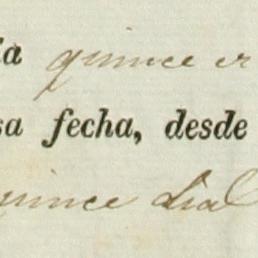 ia quince er
sa fecha, desde
quince dial